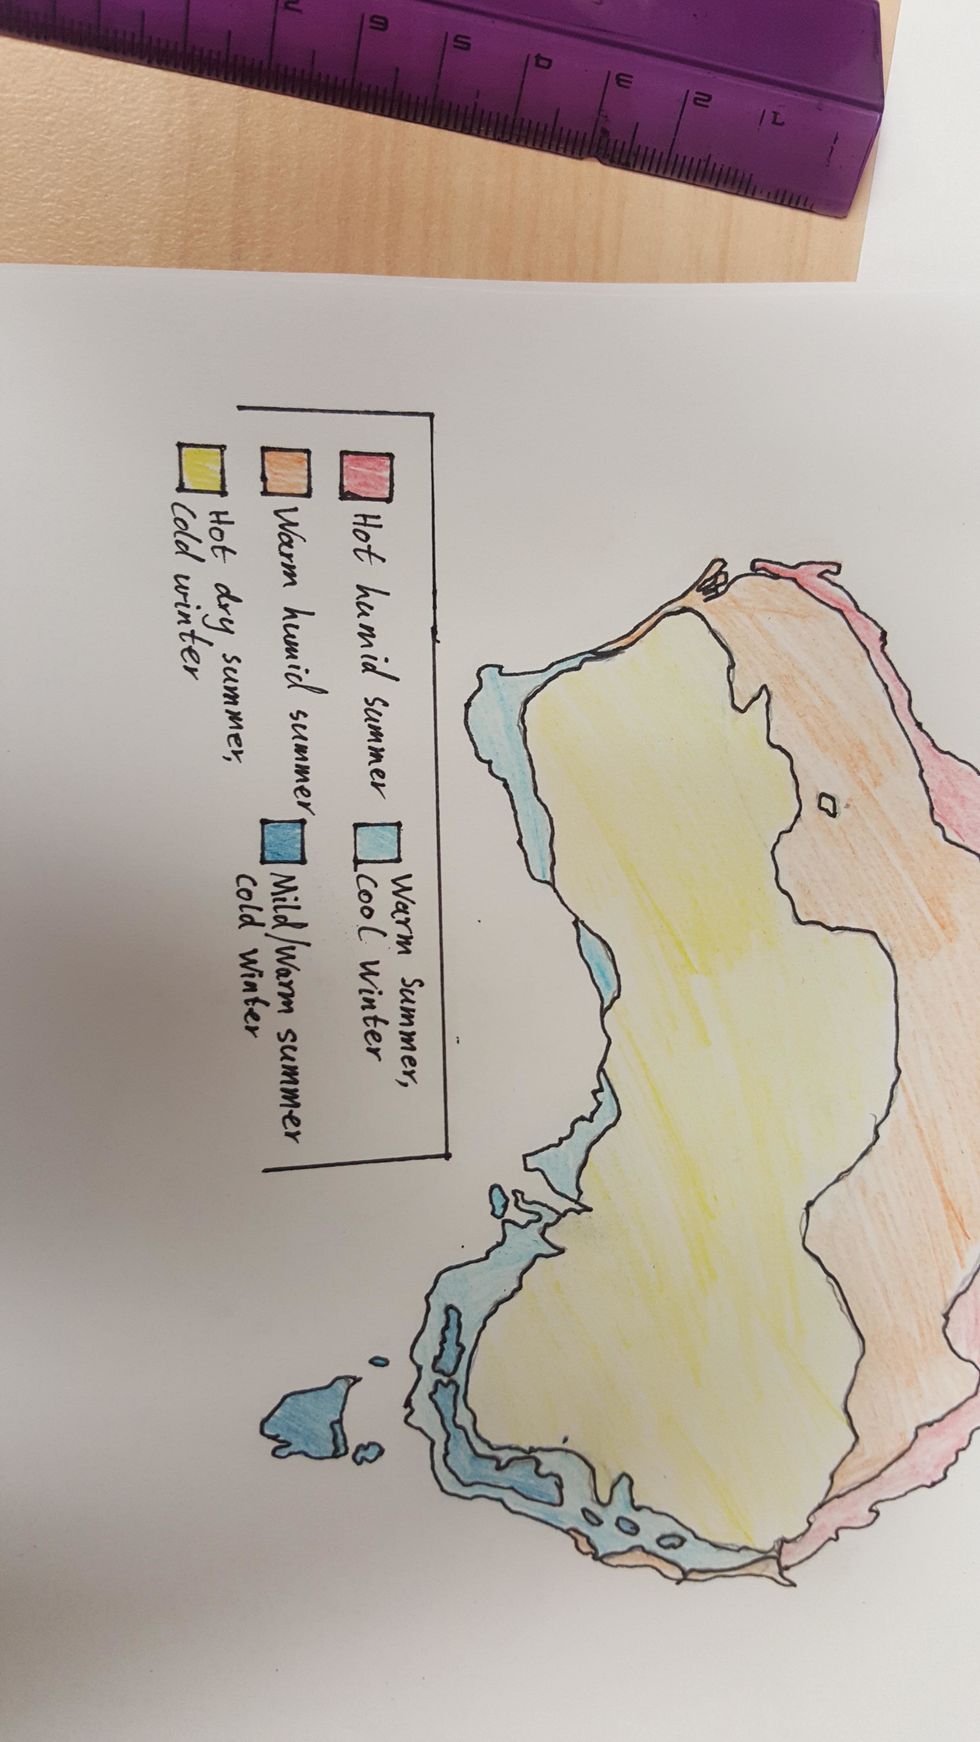 Hot humid summer
Warm humid summer
Hot dry summer,
Cold winter
Warm Summer,
Cool Winter
Mild/Warm summer
Cold Winter
1
2
3
4
5
6
7